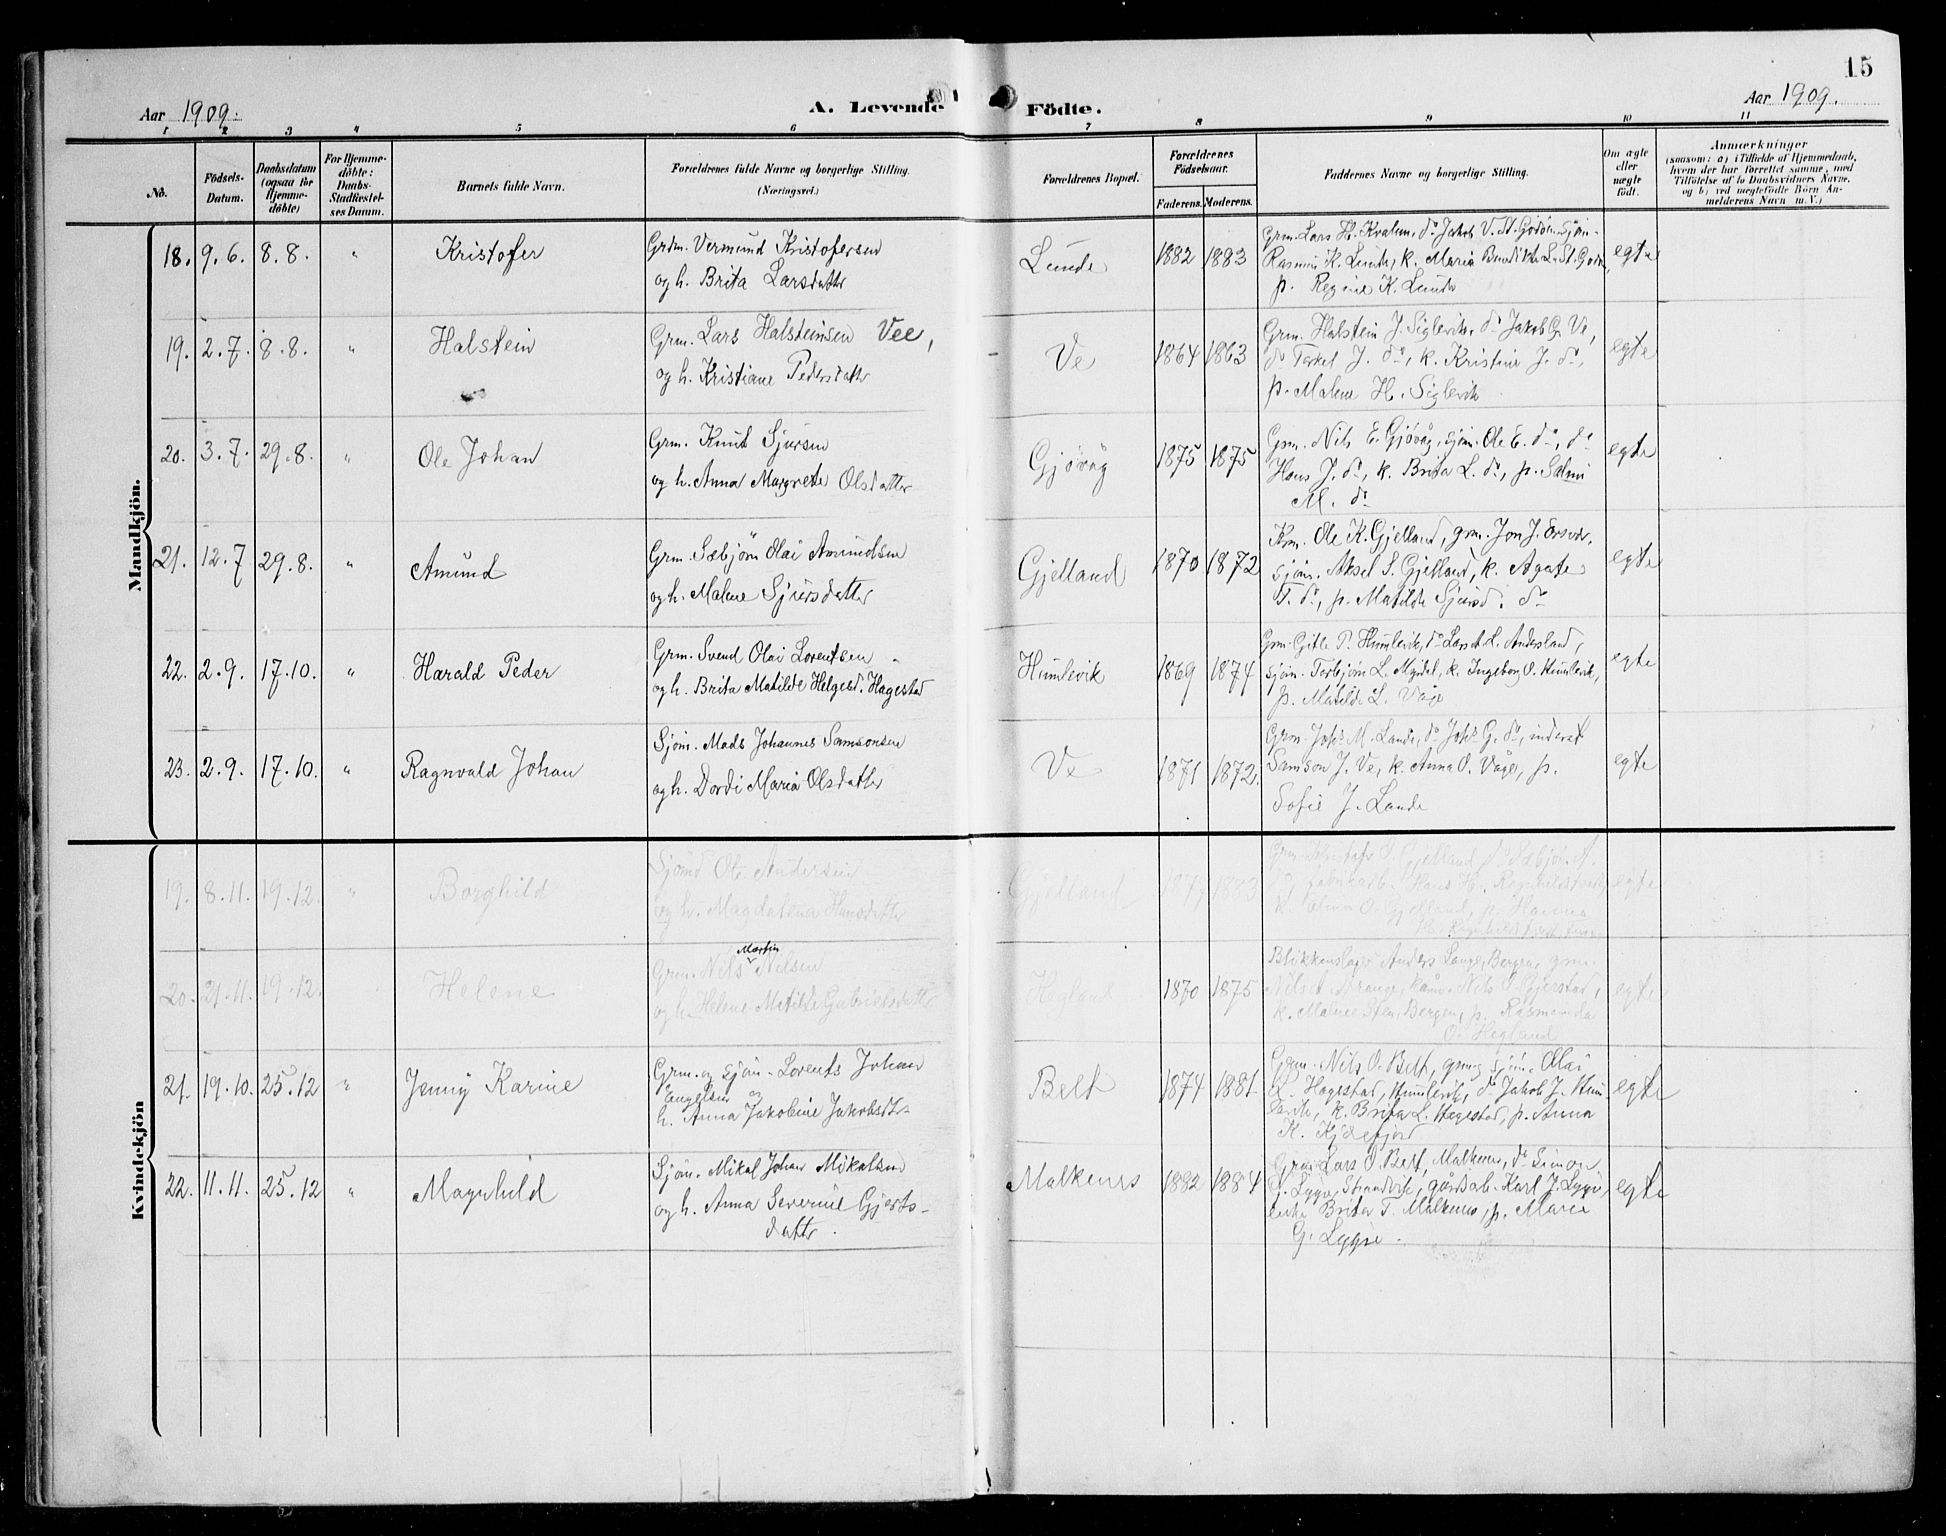 15
Aar 1909.
A. Levende Födte.
Aar 1909.
1 2 3 4 5 6 7 8 9 10 11
No.
Födsels-
Datum.
Daabsdatum
(ogsaa for
Hjemme-
döbte)
For Hjemme-
döbte:
Daabs-
Stadfæstel-
ses Datum.
Barnets fulde Navn.
Forældrenes fulde Navne og borgerlige Stilling.
(Næringsvei.)
Forældrenes Bopæl.
Forældrenes
Födselsaar.
Faderens. Moderens.
Faddernes Navne og borgerlige Stilling.
Om ægte
eller
uægte
födt.
Anmærkninger
(saasom: a) i Tilfælde af Hjemmedaab,
hvem der har forrettet samme, med
Tilföielse af to Daabsvidners Navne,
og b) ved uægtefödte Börn An-
melderens Navn m. V.)
Mandkjön.
18. 9.6. 8.8. " Kristofer
Grdm. Vermund Kristofersen
og h. Brita Larsdatter
Lunde 1882 1883
Grm. Lars H. Kvalem, do Jakob V. St. Godön. Sjöm.
Rasmus K. Lunde, k. Maria Bendikte L. St. Godön,
p. Regine K. Lunde
egte
19. 2.7. 8.8. " Halstein
Grm. Lars Halsteinsen Vee,
og h. Kristiane Pedersdatter
Ve 1864 1863
Grm. Halstein J. Siglevik, do Jakob G. Ve,
do Terkel J. do, k. Kristine J. do,
p. Malene H. Siglevik
egte
20. 3.7. 29.8. " Ole Johan
Grm. Knut Sjursen
og h. Anna Margrete Olsdatter
Gjøvåg 1875 1875
Grm. Nils E. Gjøvåg, sjöm. Ole E. do, do
Hans J. do, k. Brita L. do, p. Salmi
M. do
egte
21. 12.7 29.8. " Amund
Grm. Sæbjørn Olai Amundsen
og h. Malene Sjursdatter
Gjelland 1870 1872
Krm. Ole K. Gjelland, grm. Jon J.
sjöm. Aksel S. Gjelland, k. Agate
T. do, p. Matilde Sjursd. do
egte
22. 2.9. 17.10. " Harald Peder
Grm. Svend Olai Lorentsen
og h. Brita Matilde Helgesd. Hagestad
Humlevik 1869 1874
Grm. Gitle P. Humlevik, do Lars L. Andersland,
sjöm. Torbjørn L. Mydel, k. Ingeborg O. Humlevik,
p. Matilde L. Våge
egte
23. 2.9. 17.10. " Ragnvald Johan
Sjöm. Mads Johannes Samsonsen
og h. Dordi Maria Olsdatter
Ve 1871 1872.
Grm. Johs M. Lande, do Johs G. do, inderst
Samson J. Ve, k. Anna O. Våge, p.
Sofie J. Lande
egte
Kvindekjön
19. 8.11. 19.12. " Borghild
Sjömd Ole Andersen
og h. Magdalena Hansdatter
Gjelland 1879 1883
Grm. Kristofer S. Gjelland, do Sæbjön A.
do, fabrikarb. Hans H.
k. Alma O. Gjelland, p. Hanna
egte
20. 21.11. 19.12. Helene
Martin
Grm. Nils Nilsen
og h. Helene Matilde Gabrielsdatter
Hegland 1870 1875
Blikkenslager Anders Lange, Bergen, grm.
Nils Drange, Nils O. Gjerstad,
k. Malene Sten, Bergen, p. Rasmunda
O. Hegland
egte
21. 19.10. 25.12 " Jenny Karine
Grm. og sjöm. Lorents Johan
Engelsen og
h. Anna Jakobine Jakobsdtr
Belt 1874 1881.
Grm. Nils O. Belt, grm. og sjöm. Olai
L. Hagestad, Humlevik, do Jakob J. Hum
levik, k. Brita L. Hagestad, p. Anna
K. Kjörefjord
egte
22. 11.11. 25.12 " Magnhild
Sjöm. Mikal Johan Mikalsen
og h. Anna Severine Gjerts-
datter.
Malkenes 1882 1884
Grm. Lars O. Belt, Malkenes, do Simon
G. Lygre, Strandvik, gårdsarb. Karl J. Lygre,
enke Brita T. Malkenes, p. Marie
G. Lygre.
egte